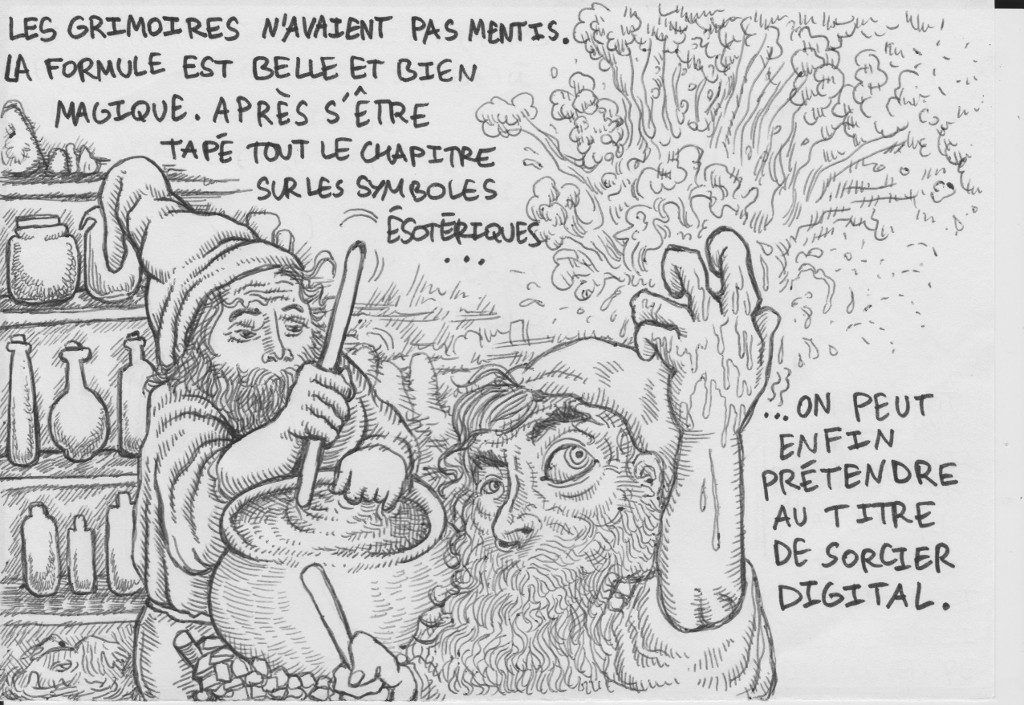 LES GRIMOIRES N'AVAIENT PAS MENTIS.
LA FORMULE EST BELLE ET BIEN
MAGIQUE. APRÈS S'ÊTRE
TAPÉ TOUT LE CHAPITRE
SUR LES SYMBOLES
ÉSOTÉRIQUES
...
...ON PEUT
ENFIN
PRÉTENDRE
AU TITRE
DE SORCIER
DIGITAL.